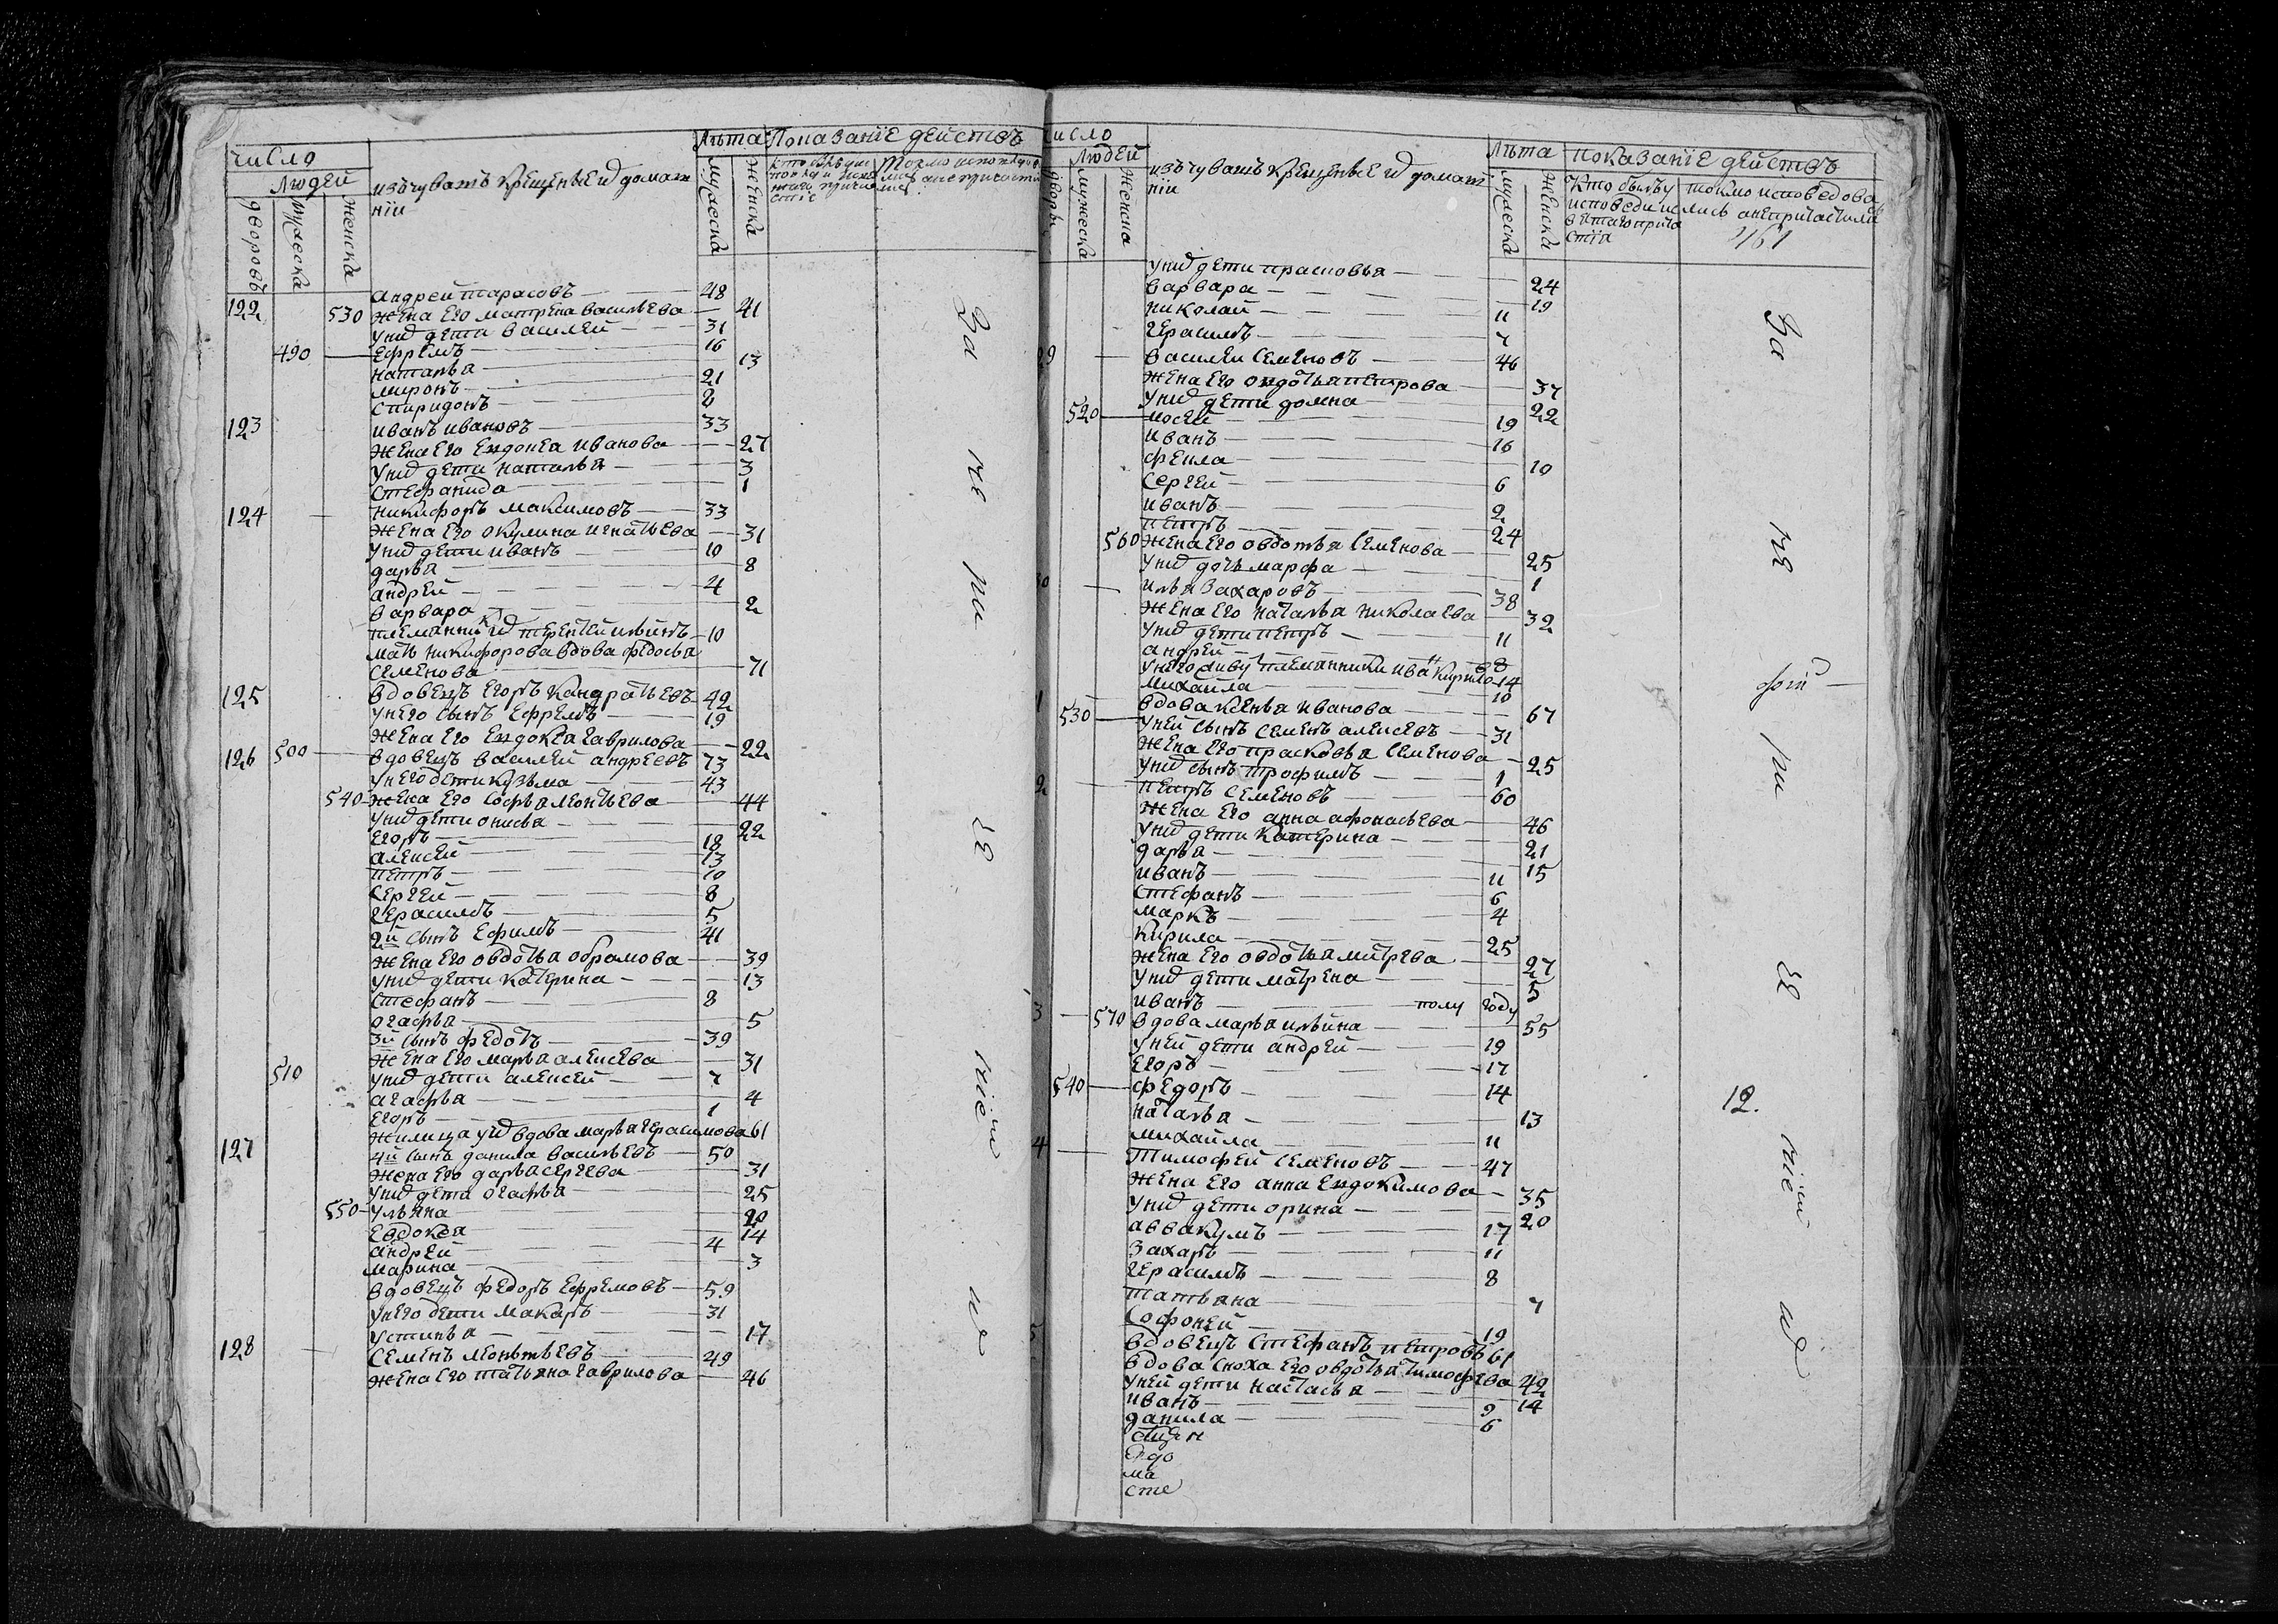 число
людей
дворовъ
мужеска
женска
изъ чувашъ крещеные и домаш
нїи
Лѣта
мужеска
женска
Показанїе действъ
122 Андрей Тарасовъ 48
530 жена его Матрена Васильева 41
у них дети Василей 31
490 Ефремъ 16
Наталья 13
Миронъ 21
Спиридонъ 2
123 Иванъ Ивановъ 33
жена его Евдокея Иванова 27
у них дети Наталья 3
Стефанида 1
124 Никифоръ Максимовъ 33
жена его Окулина Игнатьева 31
у них дети Иванъ 10
Дарья 8
Андрей 4
Варвара 2
племянник их Терентей Ильинъ 10
мать Никифорова вдова Федосья
Семенова 71
125 вдовецъ Егоръ Кандратьевъ 42
у него сынъ Ефремъ 19
жена его Евдокея Гаврилова 22
126 500 вдовецъ Василей Андреевъ 73
у него дети Кузьма 43
540 жена его Софья Леонтьева 44
у них дети Онисья 22
Егоръ 18
Алексей 13
Петръ 10
Сергей 8
Герасимъ 5
2й сынъ Ефимъ 41
жена его Овдотья Обрамова 39
у них дети Катерина 13
Стефанъ 8
Огафья 5
3й сынъ Федотъ 39
жена его Марья Алексева 31
510 у них дети Алексей 7
Агафья 4
Егоръ 1
жилица у них вдова Марья Герасимова 61
127 4й сынъ Данила Васильевъ 50
жена его Дарья Сергева 31
у них дети Огафья 25
550 Ульяна 20
Евдокея 14
Андрей 4
Марина 3
вдовецъ Федоръ Ефремовъ 59
у него дети Макаръ 31
Устинья 17
128 Семенъ Леонтьевъ 49
жена его Татьяна Гаврилова 46
число
людей
дворы
мужеска
женска
изъ чувашъ крещеные и домаш
нїи
Лѣта
мужеска
женска
показанїе действъ
Кто былъ у
исповеди и
токмо исповедова
лись а не причастили
461
у них дети Прасковья 24
Варвара 19
Николай 11
Герасимъ 7
9 Василей Семеновъ 46
жена его Овдотья Петрова 37
у них дети Домна 22
520 Мосей 19
Иванъ 16
Фекла 10
Сергей 6
Иванъ 2
Петръ 24
560 жена его Овдотья Семенова 25
у них дочь Марфа 1
30 Илья Захаровъ 38
жена его Наталья Николаева 32
у них дети Петръ 11
Андрей 8
у него племянники Иван Кирило 14
Михайла 10
1 вдова Ксенья Иванова 67
530 у ней сынъ Семенъ Алексевъ 31
жена его Прасковья Семенова 25
у них сынъ Трофимъ 1
2 Петръ Семеновъ 60
жена его Анна Афонасьева 46
у них дети Катерина 21
Дарья 15
Иванъ 11
Стефанъ 6
Маркъ 4
Кирила 25
жена его Овдотья Митрева 27
у них дети Матрена 5
Иванъ полу году
3 570 вдова Марья Ильина 55
у ней дети Андрей 19
Егоръ 17
540 Федоръ 14
Наталья 13
Михайла 11
4 Тимофей Семеновъ 47
жена его Анна Евдокимова 35
у них дети Орина 20
Аввакумъ 17
Захаръ 11
Герасимъ 8
Татьяна 7
Софоней 19
5 вдовецъ Стефанъ Петровъ 61
вдова сноха его Овдотья Тимофева 42
у ней дети Настасья 14
Иванъ 9
Данила 6
ма
сте
За
не
12.